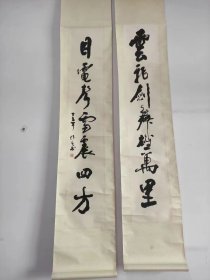 雲龍劍舞城萬里
目電聲雷震四方